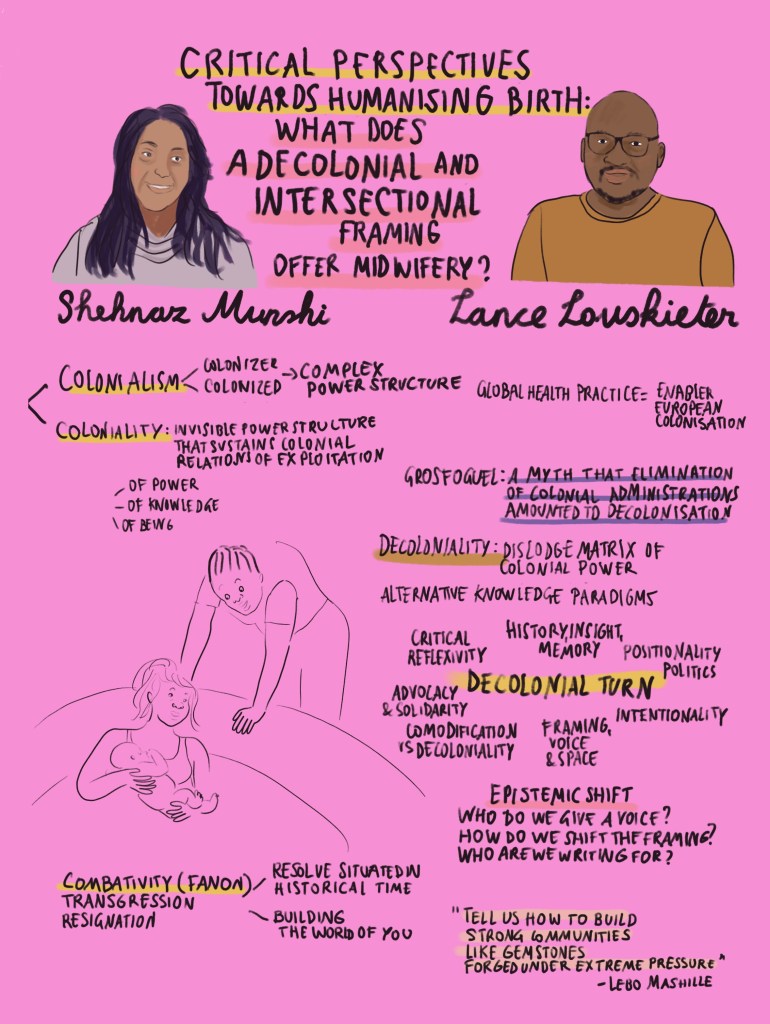 CRITICAL PERSPECTIVES
TOWARDS HUMANISING BIRTH:
WHAT DOES
A DECOLONIAL AND
INTERSECTIONAL
FRAMING
OFFER MIDWIFERY?
Shehnaz Munshi
Lance Louskieter
COLONIALISM
COLONIZER
COLONIZED
→ COMPLEX
POWER STRUCTURE
COLONIALITY: INVISIBLE POWER STRUCTURE
THAT SUSTAINS COLONIAL
RELATIONS OF EXPLOITATION
OF POWER
OF KNOWLEDGE
OF BEING
GLOBAL HEALTH PRACTICE = ENABLER
EUROPEAN
COLONISATION
GROSFOGUEL: A MYTH THAT ELIMINATION
OF COLONIAL ADMINISTRATIONS
AMOUNTED TO DECOLONISATION
DECOLONIALITY: DISLODGE MATRIX OF
COLONIAL POWER
ALTERNATIVE KNOWLEDGE PARADIGMS
CRITICAL
REFLEXIVITY
HISTORY, INSIGHT,
MEMORY
POSITIONALITY
POLITICS
DECOLONIAL TURN
ADVOCACY
& SOLIDARITY
COMODIFICATION
VS DECOLONIALITY
FRAMING,
VOICE
& SPACE
INTENTIONALITY
EPISTEMIC SHIFT
WHO DO WE GIVE A VOICE?
HOW DO WE SHIFT THE FRAMING?
WHO ARE WE WRITING FOR?
COMBATIVITY (FANON)
TRANSGRESSION
RESIGNATION
RESOLVE SITUATED IN
HISTORICAL TIME
BUILDING
THE WORLD OF YOU
"TELL US HOW TO BUILD
STRONG COMMUNITIES
LIKE GEMSTONES
FORGED UNDER EXTREME PRESSURE"
- LEBO MASHILLE